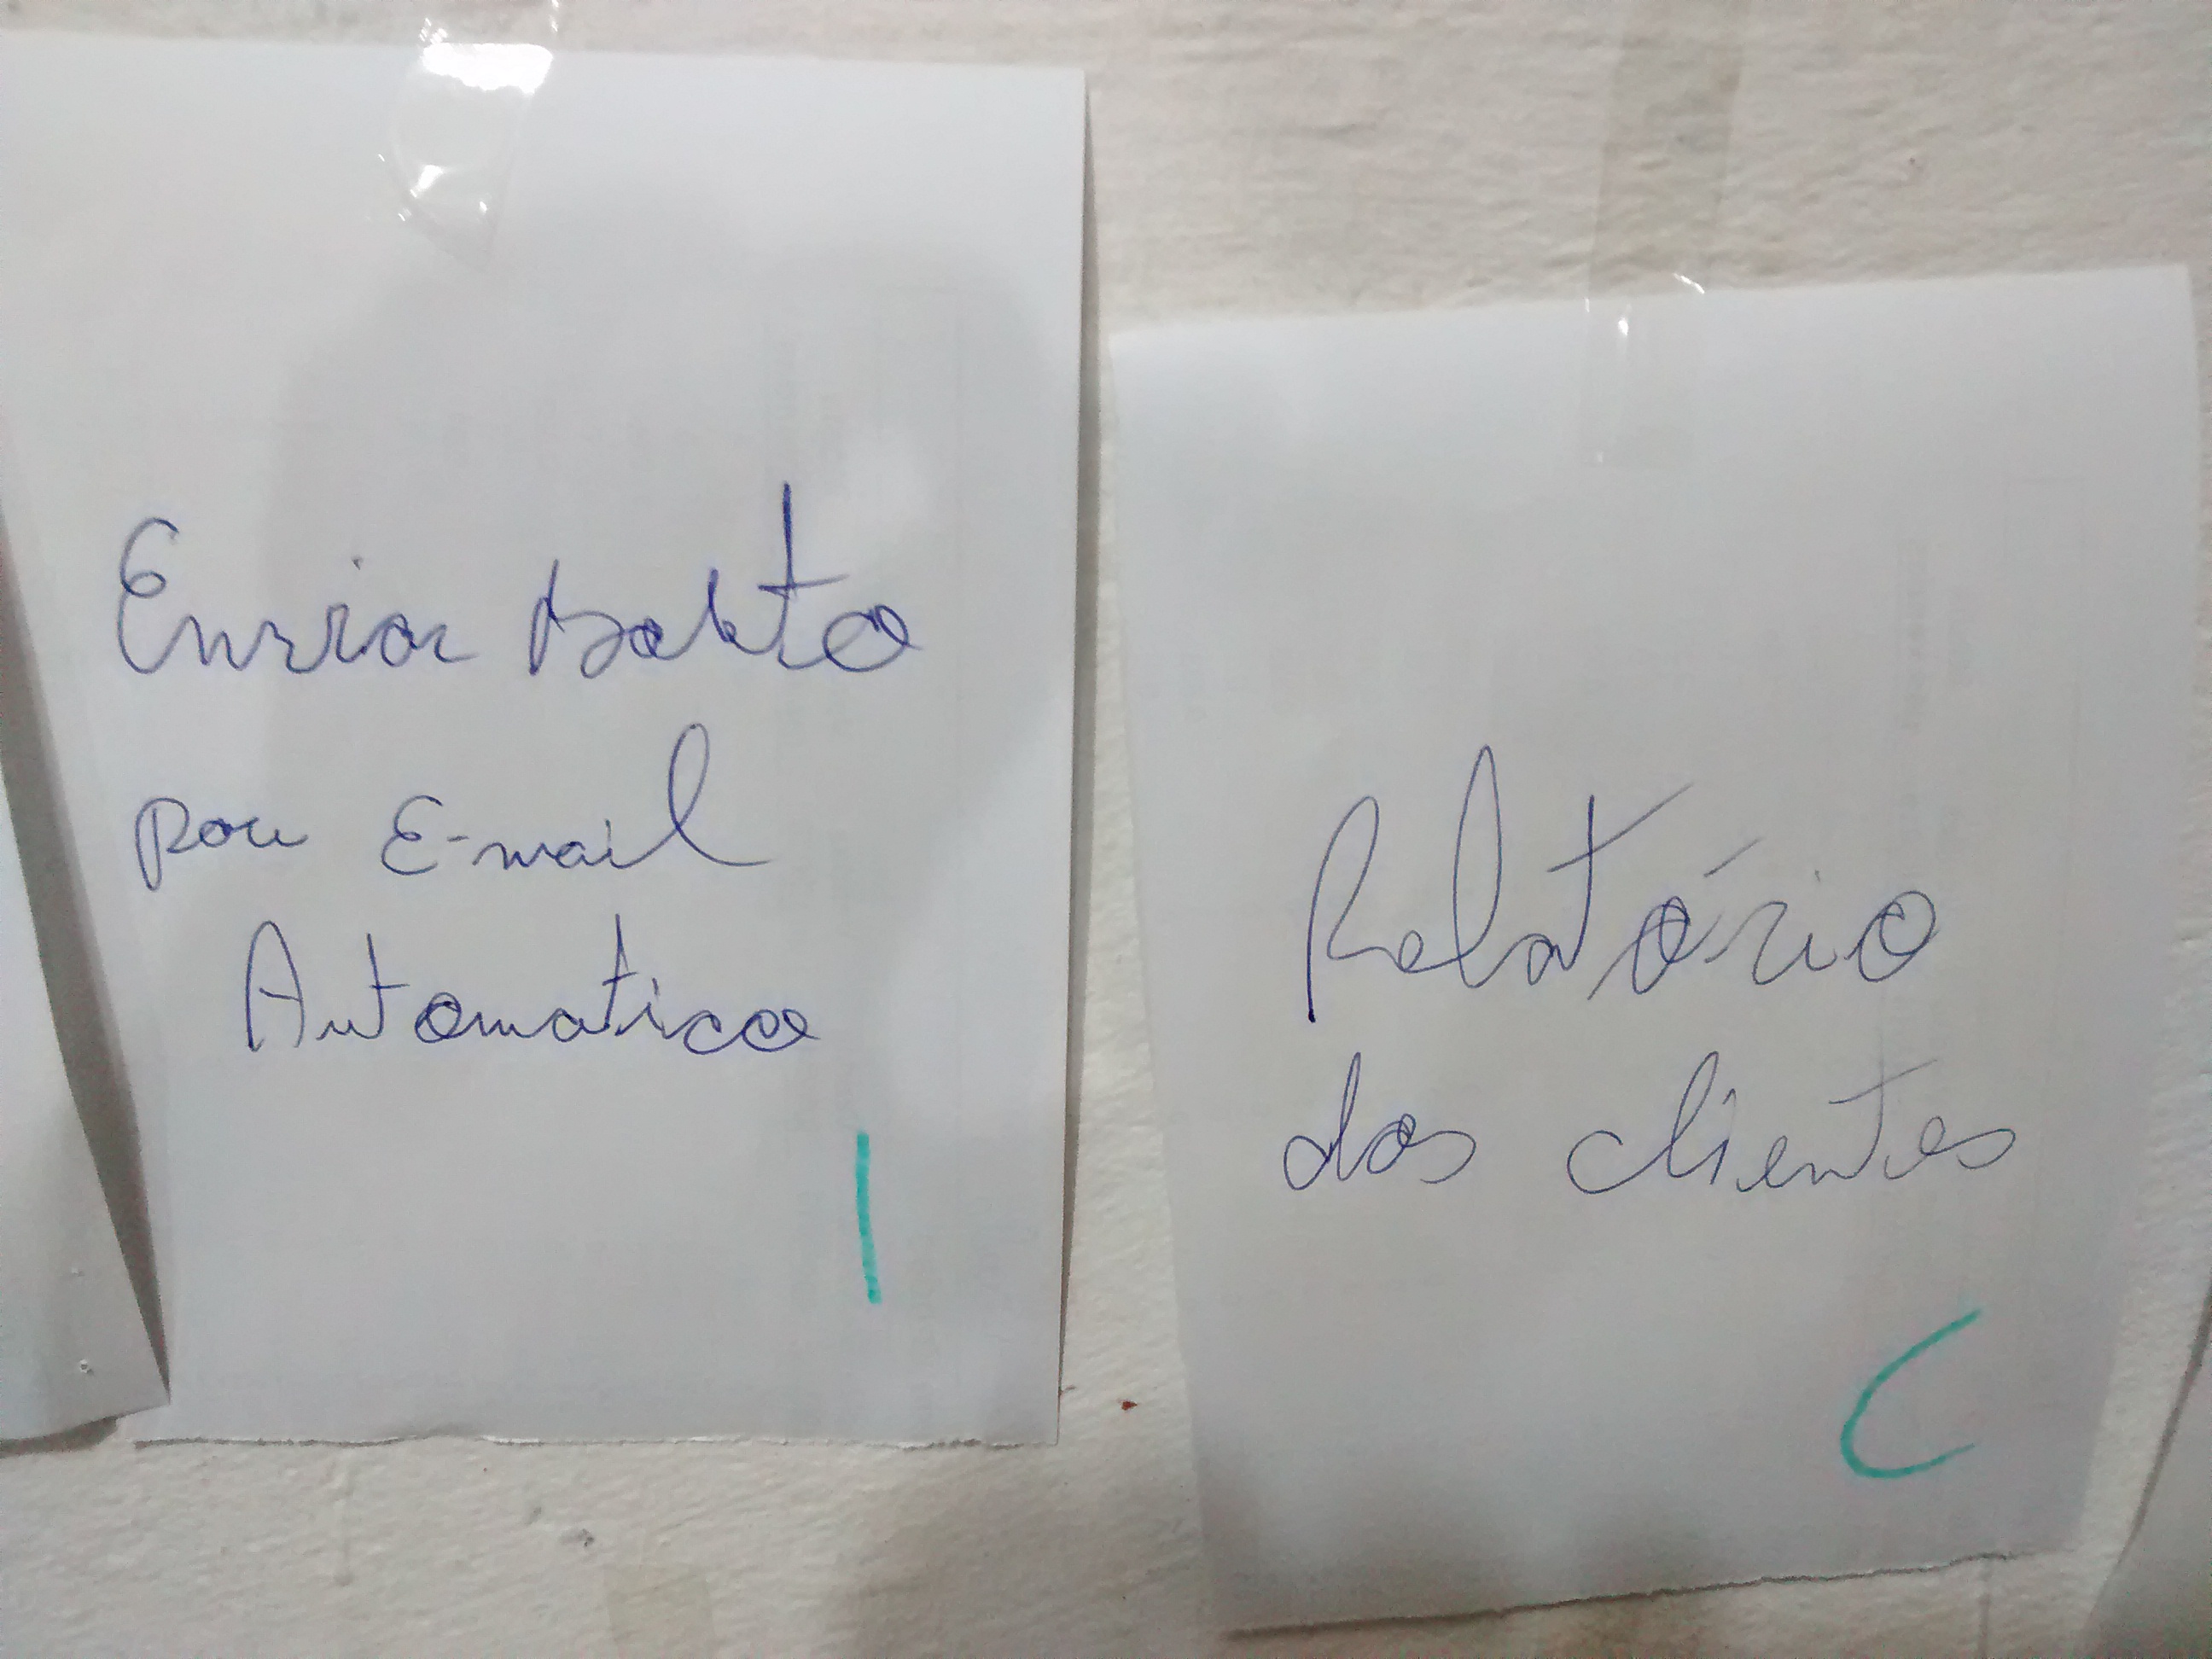 Enviar boleto
por E-mail
Automatico
I
Relatório
dos clientes
C